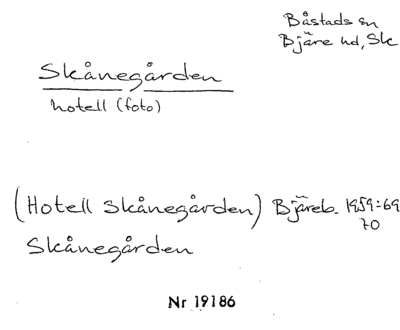 Båstads sn
Bjäre hd, Sk
Skånegården
hotell (foto)
(Hotell Skånegården) Bjäreb. 1959:69
70
Skånegården
Nr 19186